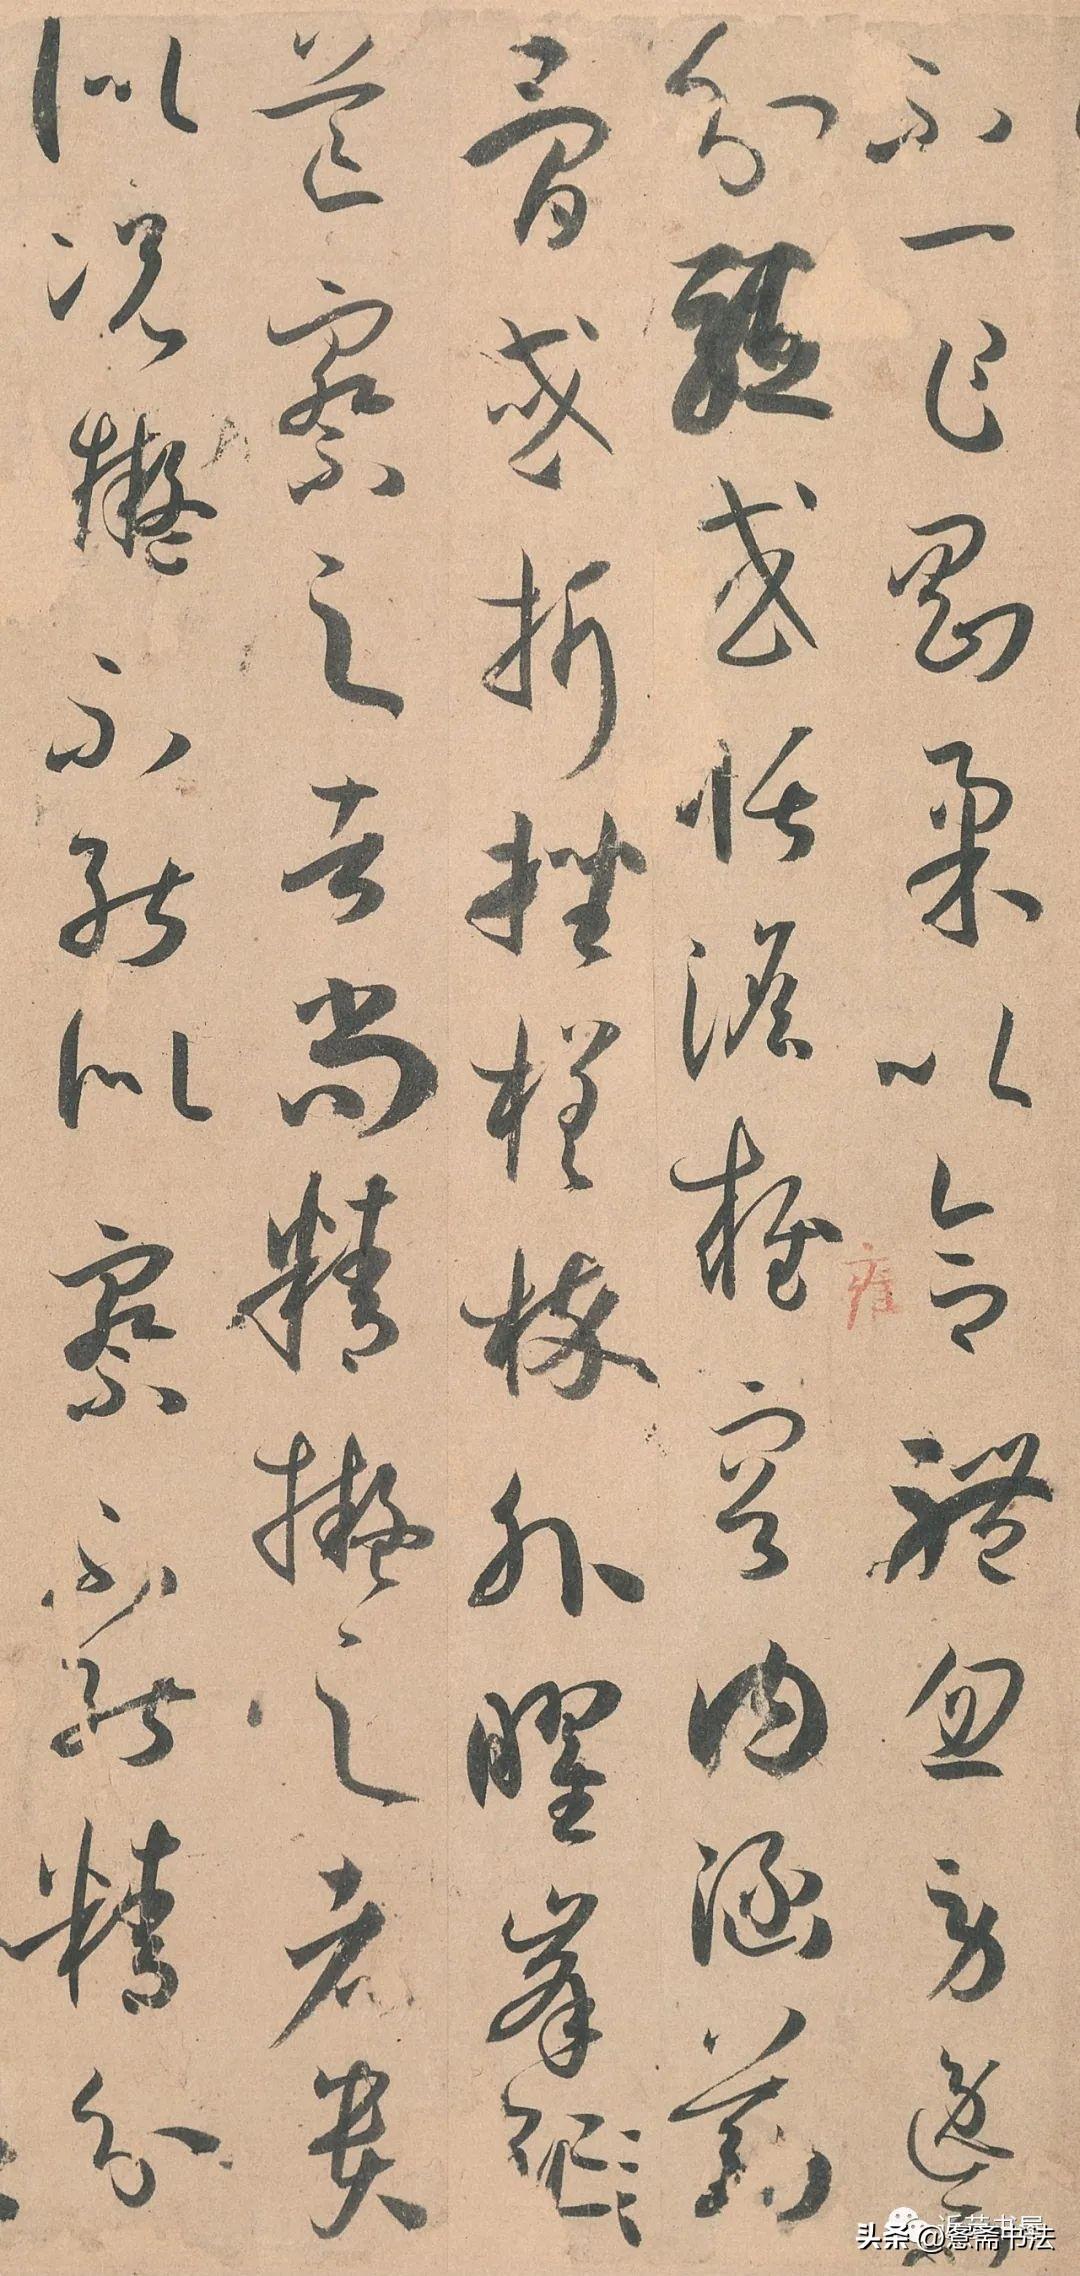 不一乍剛柔以合體忽勞逸而
分驅或恬澹雍容內涵筋
骨或折挫槎枿外曜峯
芒察之者尚精擬之者貴
似況擬不能似察不能精分
雍
头条 @愙斋书法